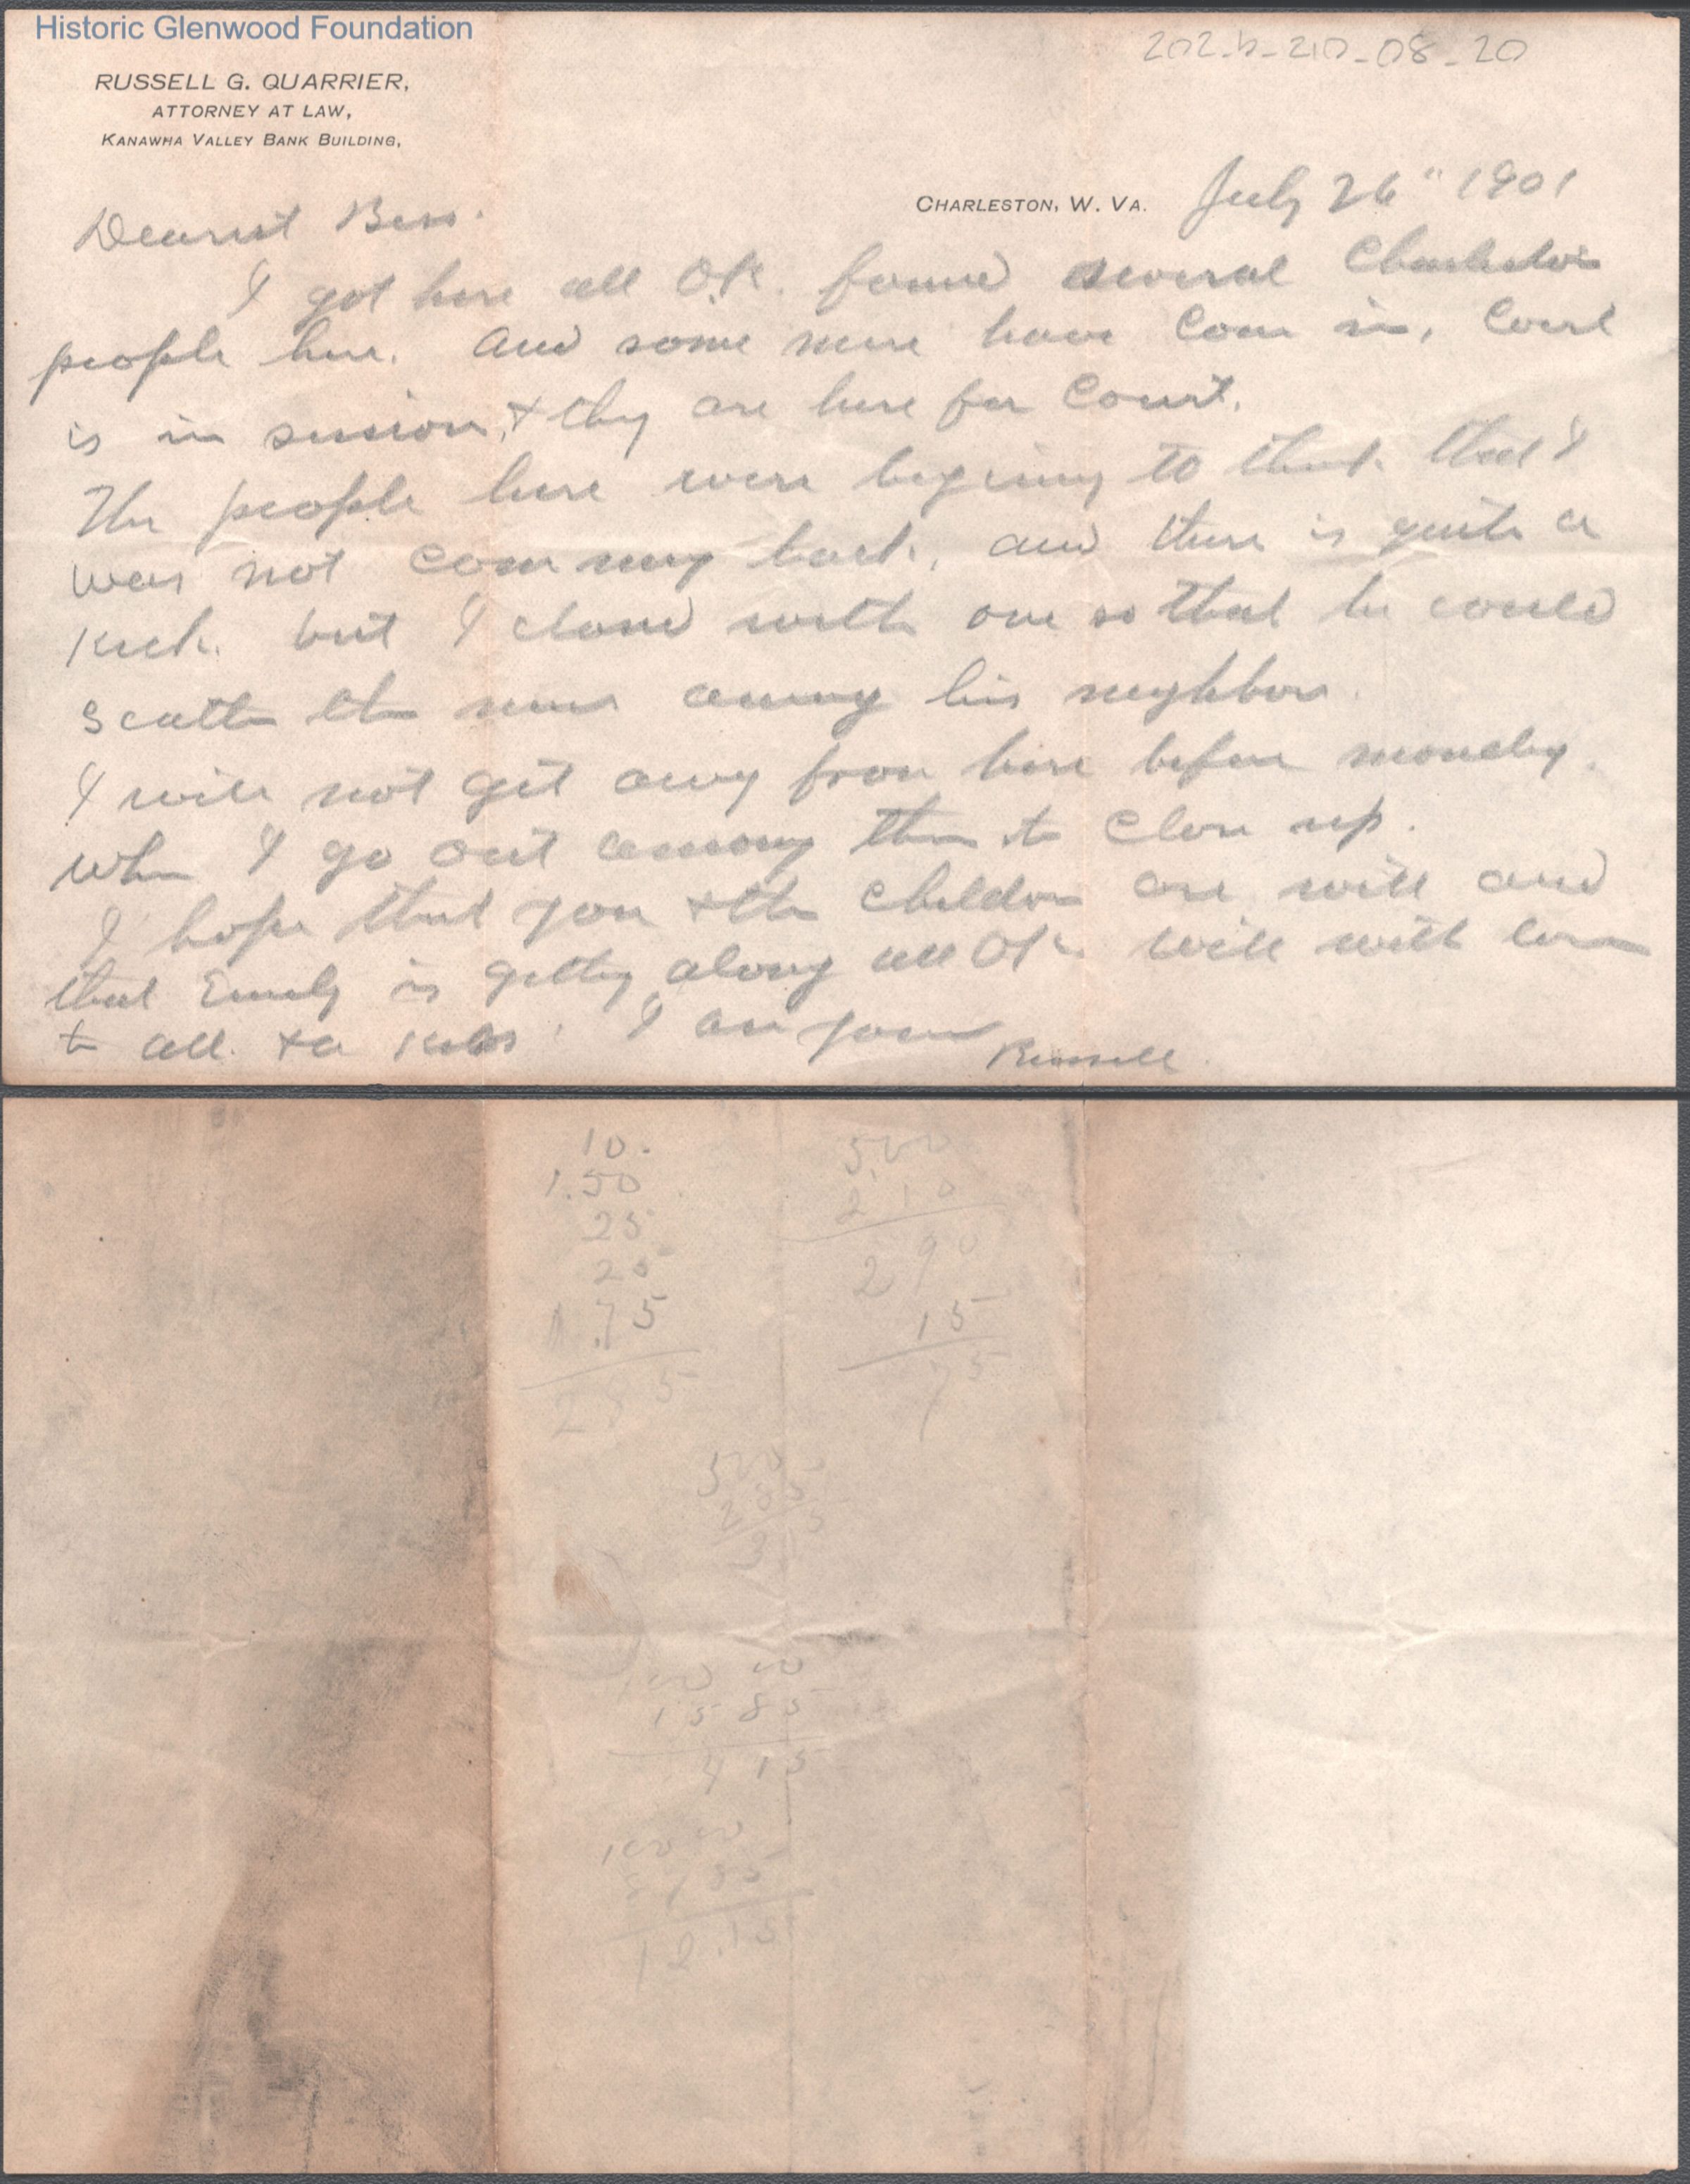 Historic Glenwood Foundation
202-b-210-08-20
RUSSELL G. QUARRIER,
ATTORNEY AT LAW,
KANAWHA VALLEY BANK BUILDING,
CHARLESTON, W. VA. July 26" 1901
Dearest Bess.
I got here all O.K. found several Charleston
people here. and some more have come in, Court
is in session, & they are here for Court.
The people here were begining to think that I
was not comming back, and there is quite a
kick. but I closed with one so that he could
scatter the news among his neighbors.
I will not get away from here before monday.
when I go out among them to close up.
I hope that you & the children are well and
that Emily is getting along all OK. Well with love
to all. & a kiss. I am yours
Russell
10.
1.50
25
25
.75
285
5.00
210
290
15
75
500
285
315
100 00
15 85
415
100 00
87 85
12.15